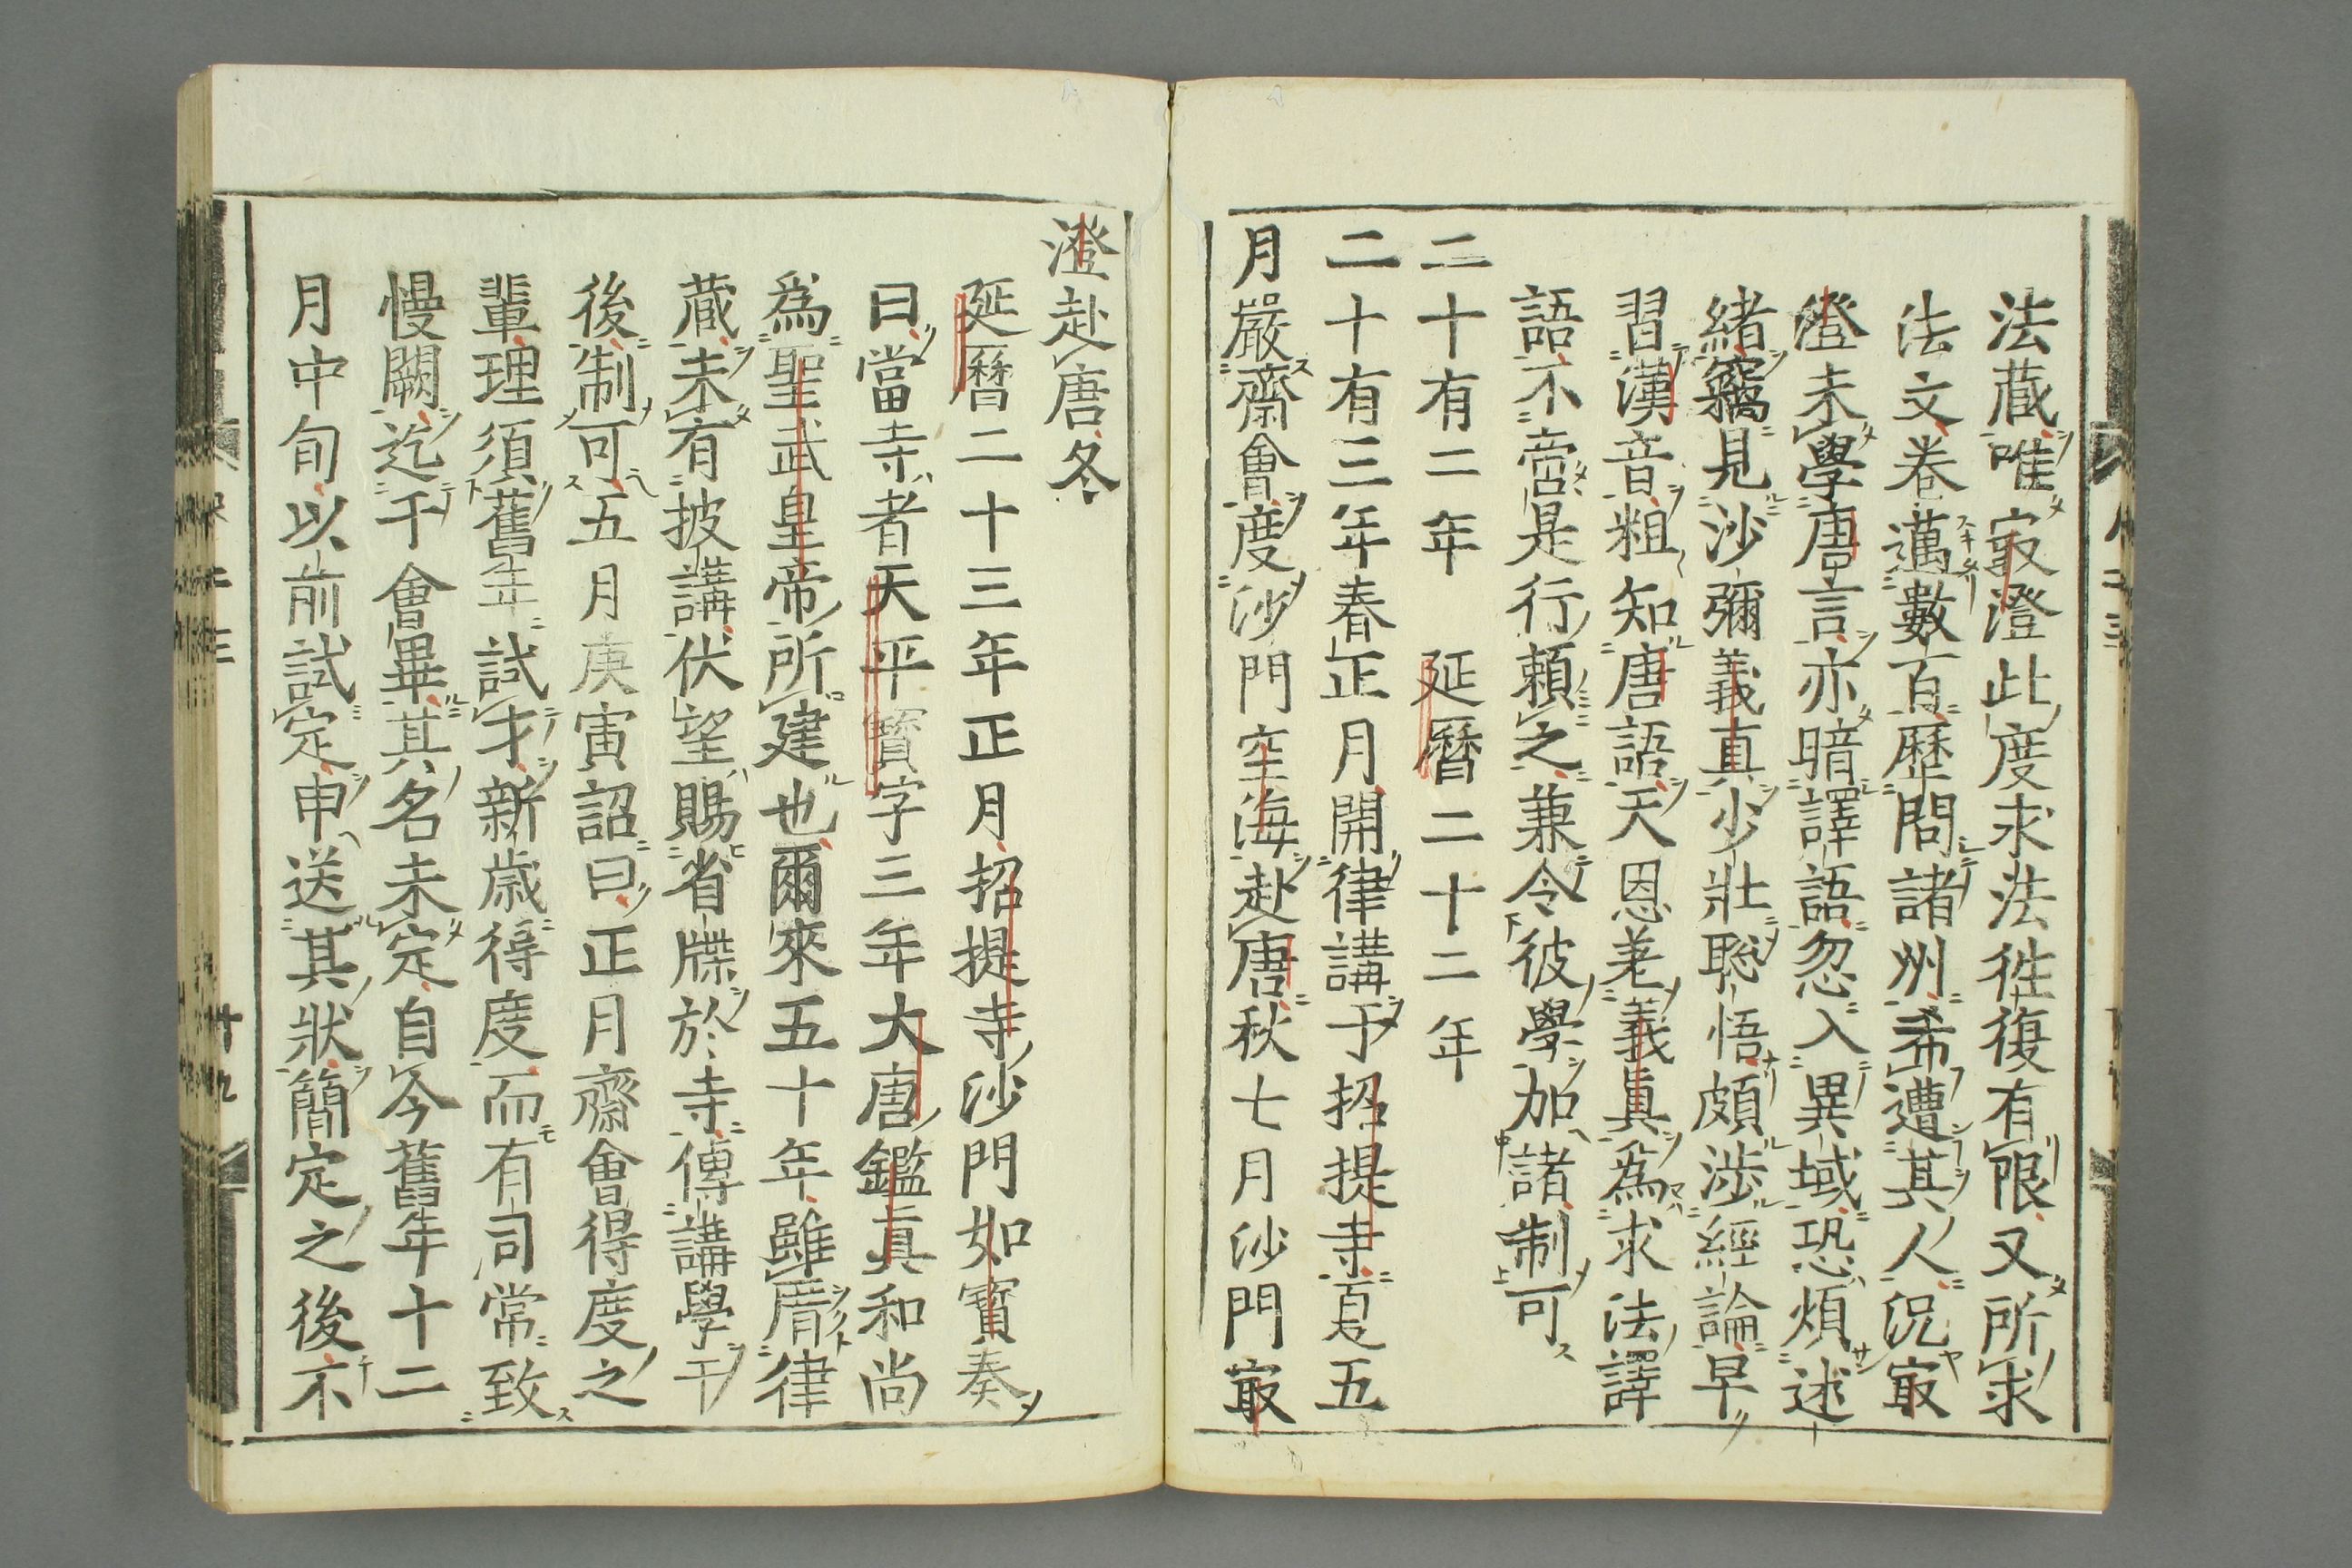 法蔵唯㝡澄此度求法徃復有限又所求
法文卷邁數百歴問諸州希遭其人況㝡
澄未學唐言亦暗譯語忽入異域恐煩述
緒竊見沙彌義真少壯聡悟頗渉經論早
習漢音粗知唐語天恩差義真為求法譯
語不啻是行頼之兼令彼學加諸制可
二十有二年　延曆二十二年
二十有三年春正月開律講于招提寺夏五
月嚴齋會度沙門空海赴唐秋七月沙門㝡
澄赴唐冬
延曆二十三年正月招提寺沙門如寳奏
曰當寺者天平寳字三年大唐鑑真和尚
為聖武皇帝所建也爾來五十年雖厝律
蔵未有披講伏望賜省牒於寺傳講學于
後制可五月庚寅詔曰正月齋會得度之
輩理須舊年試才新歳得度而有司常致
慢闕迄于會畢其名未定自今舊年十二
月中旬以前試定申送其狀簡定之後不